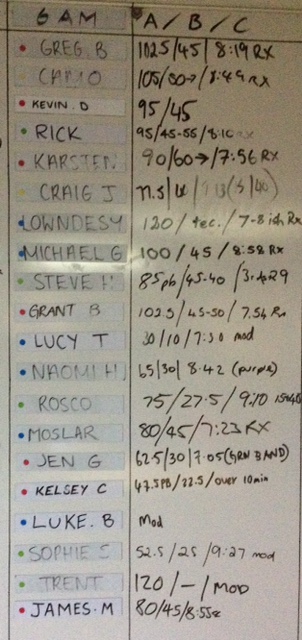 6 AM A / B / C
GREG. B 102.5 / 45 / 8:19 RX
CAMO 105 / 60→ / 8:49 RX
KEVIN. D 95 / 45
RICK 95 / 45-55 / 8:10 RX
KARSTEN 90 / 60→ / 7:56 RX
CRAIG J
LOWNDESY 120 / tec. / 7-8 ish Rx
MICHAEL G 100 / 45 / 8:58 RX
STEVE H 85pb / 45-40 /
GRANT B 102.5 / 45-50 / 7.54 Rx
LUCY T 30 / 10 / 7:30 mod
NAOMI H 65 / 30 / 8.42 (purple)
ROSCO 75 / 27.5 / 9:10
MOSLAR 80 / 45 / 7:23 RX
JEN G 62.5 / 30 / 7.05 (GRN BAND)
KELSEY C 47.5PB / 22.5 / over 10min
LUKE. B Mod
SOPHIE S 52.5 / 25 / 9:27 mod
TRENT 120 / — / MOD
JAMES. M 80 / 45 / 8:55